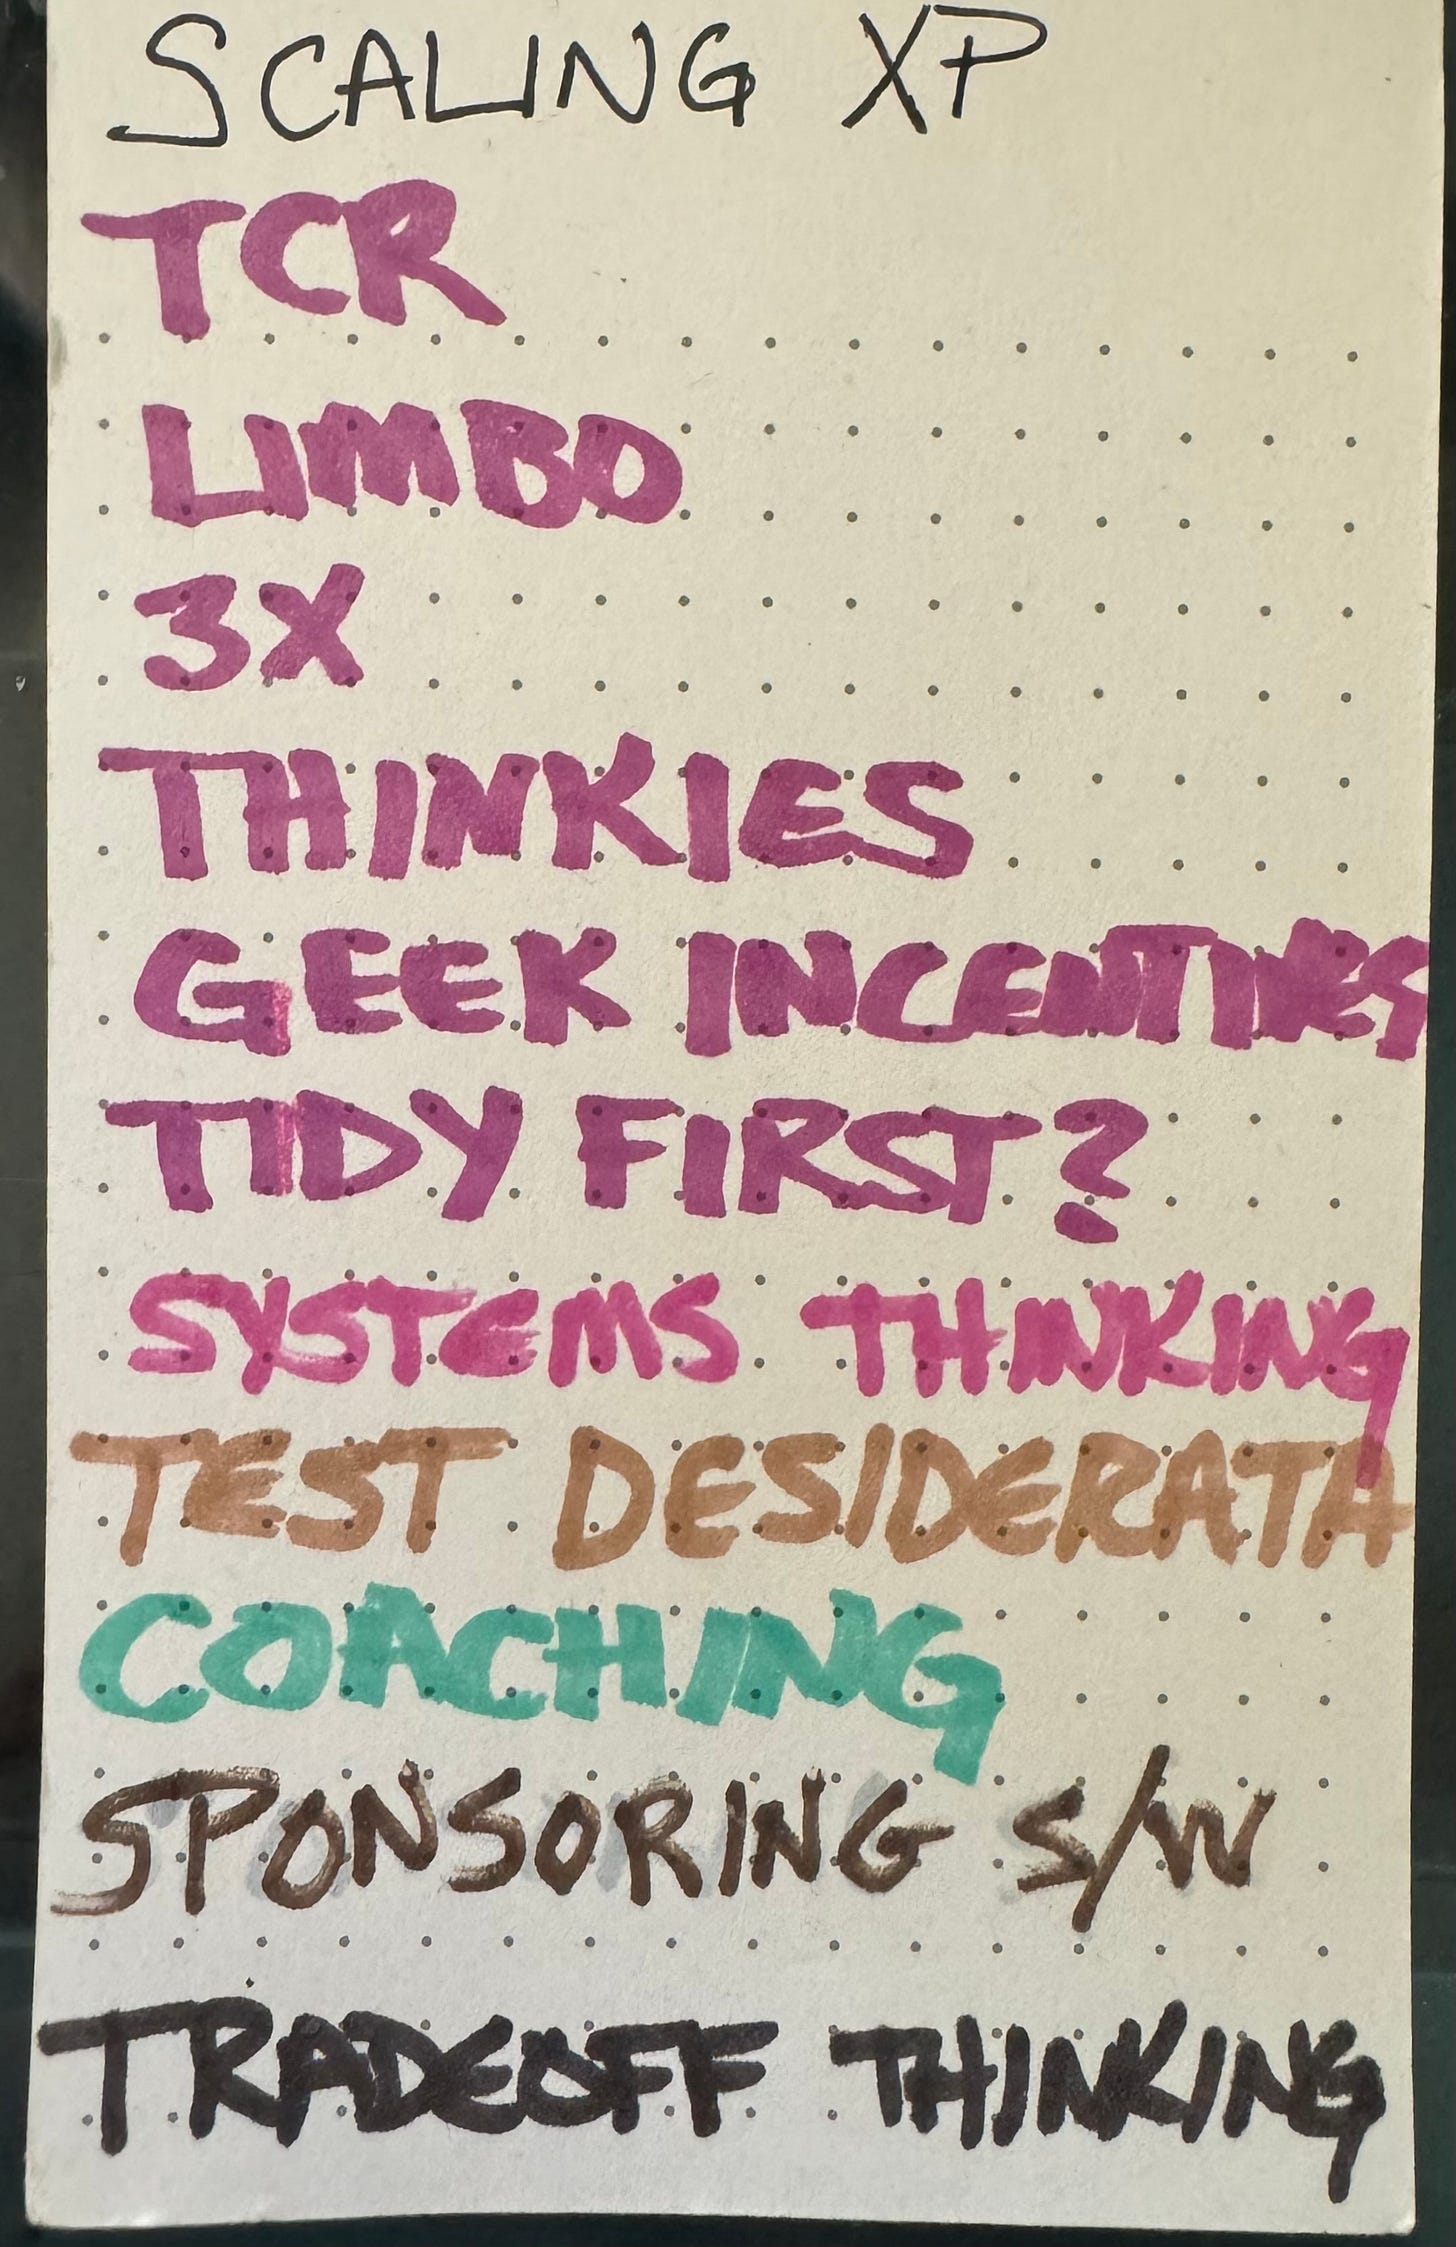 SCALING XP
TCR
LIMBO
3X
THINKIES
GEEK INCENTIVES
TIDY FIRST?
SYSTEMS THINKING
TEST DESIDERATA
COACHING
SPONSORING S/W
TRADEOFF THINKING